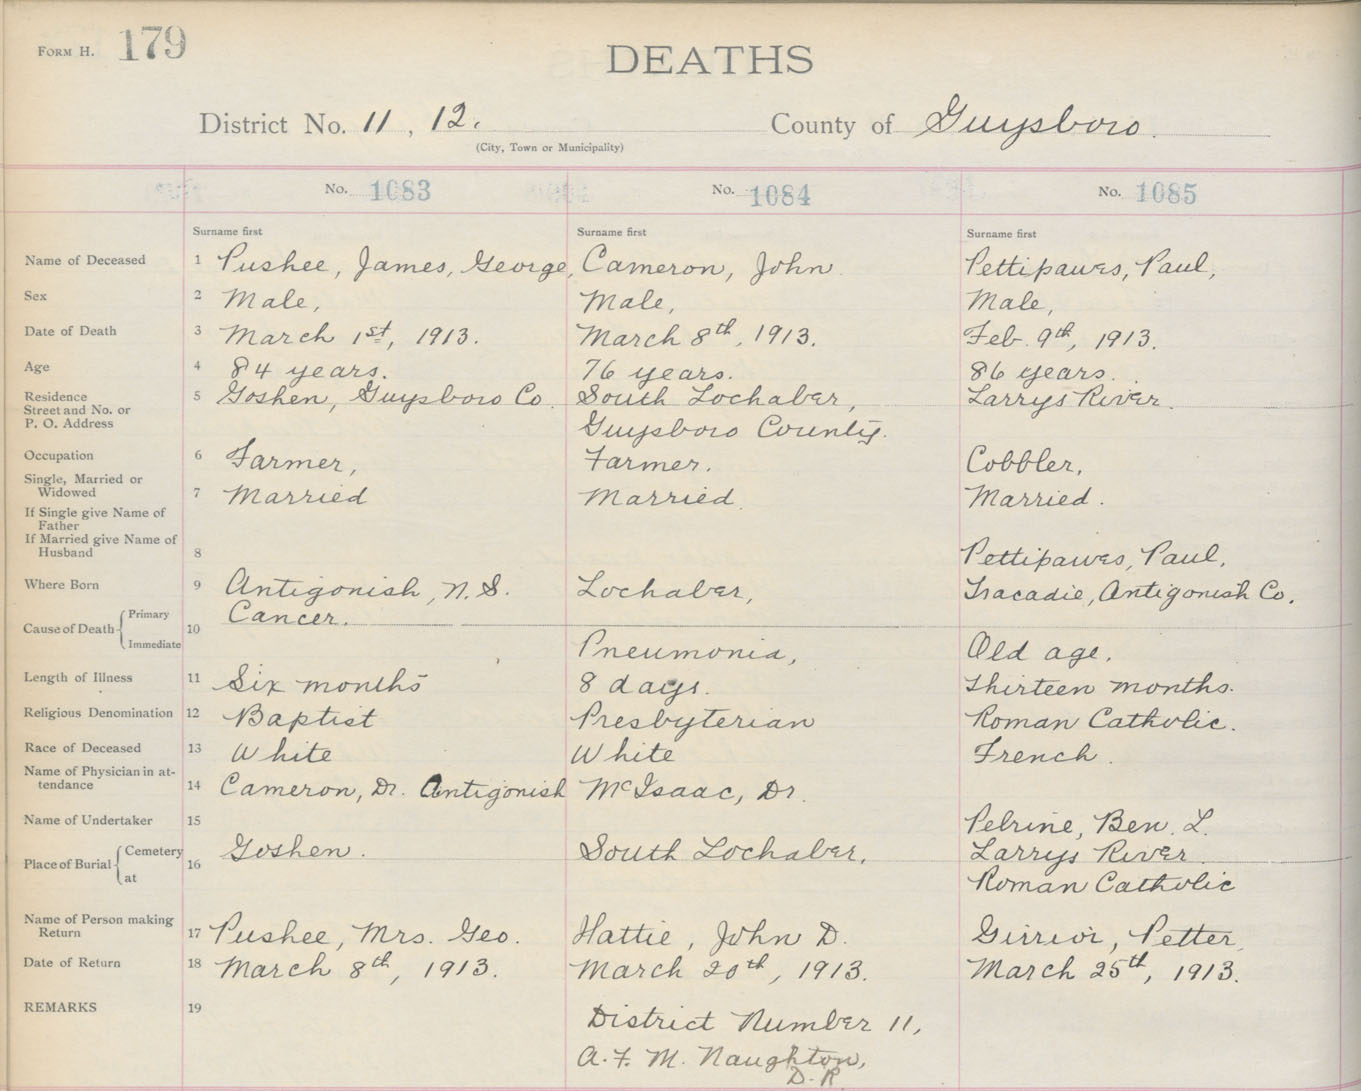 FORM H. 179
DEATHS
District No. 11, 12. County of Guysboro.
(City, Town or Municipality)
No. 1083 No. 1084 No. 1085
Surname first Surname first Surname first
Name of Deceased 1 Pushee, James, George, Cameron, John Pettipawes, Paul,
Sex 2 Male, Male, Male,
Date of Death 3 March 1st, 1913. March 8th, 1913. Feb. 9th, 1913.
Age 4 84 years. 76 years. 86 years.
Residence 5 Goshen, Guysboro Co. South Lochaber, Larrys River.
Street and No. or
P. O. Address Guysboro County.
Occupation 6 Farmer, Farmer. Cobbler,
Single, Married or
Widowed 7 Married Married. Married.
If Single give Name of
Father
If Married give Name of
Husband 8 Pettipawes, Paul,
Where Born 9 Antigonish, N.S. Lochaber, Tracadie, Antigonish Co.
Cause of Death Primary 10 Cancer.
Immediate Pneumonia, Old age.
Length of Illness 11 Six months 8 days. Thirteen months.
Religious Denomination 12 Baptist Presbyterian Roman Catholic.
Race of Deceased 13 White White French.
Name of Physician in at-
tendance 14 Cameron, Dr. Antigonish McIsaac, Dr.
Name of Undertaker 15 Pelrine, Ben. L.
Place of Burial Cemetery 16 Goshen. South Lochaber, Larrys River
at Roman Catholic
Name of Person making
Return 17 Pushee, Mrs. Geo. Hattie, John D. Girrior, Petter,
Date of Return 18 March 8th, 1913. March 20th, 1913. March 25th, 1913.
REMARKS 19 District Number 11,
A. F. M. Naughton,
D. R.